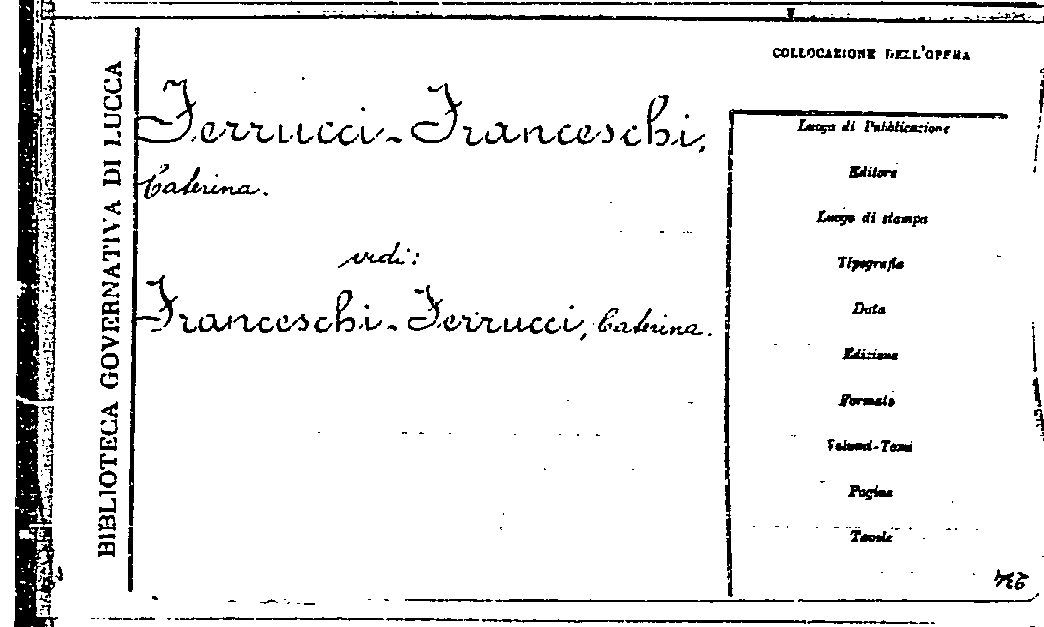 BIBLIOTECA GOVERNATIVA DI LUCCA
Ferrucci-Franceschi,
Caterina.
vedi:
Franceschi-Ferrucci, Caterina.
COLLOCAZIONE DELL'OPERA
Luogo di Pubblicazione
Editore
Luogo di stampa
Tipografia
Data
Edizione
Formato
Volumi-Tomi
Pagine
Tavole